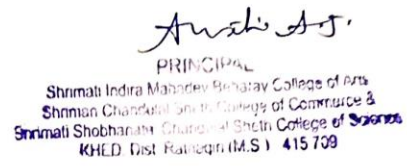 PRINCIPAL
Shrimati Indira Mahadev Beharay College of Arts
Shriman Chandulal Sheth College of Commerce &
Shrimati Shobhanaben Chandulal Sheth College of Science
KHED. Dist Ratnagiri (M.S.) 415 709